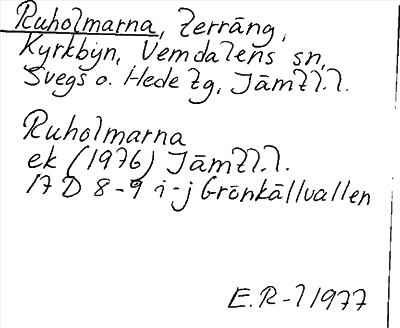 Ruholmarna, terräng,
Kyrkbyn, Vemdalens sn,
Svegs o. Hede tg, Jämtl.l.
Ruholmarna
ek (1976) Jämtl.l.
17 D 8-9 i-j Grönkällvallen
E.R-l 1977